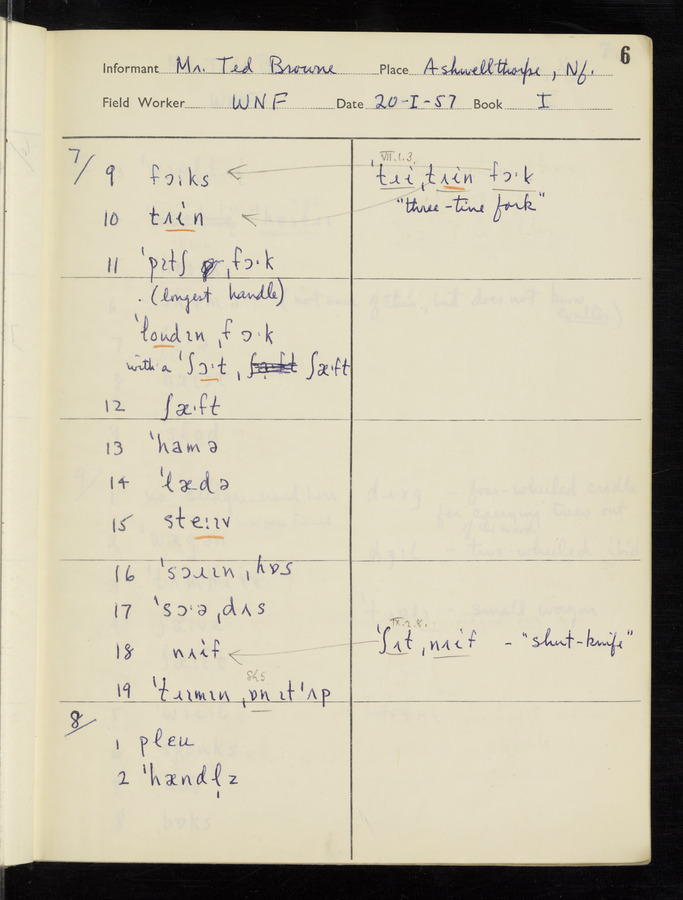 6
Informant Mr. Ted Browne Place Ashwellthorpe, Nf.
Field Worker WNF Date 20-I-57 Book I
7/ 9 fɔɪks
10 tʌɪn
11 ˈpɪtʃ ˌfɔ·k
(longest handle)
ˈloudɪn ˌfɔ·k
with a ˈʃɔ·t, ʃæ·ft
12 ʃæ·ft
13 ˈhamə
14 ˈlædə
15 steːɪv
16 ˈsɔɪɪn ˌhɒs
17 ˈsɔ·ə ˌdʌs
18 nʌɪf
19 ˈtɹɪmɪn ˌɒn ɪt ˈʌp
8/
1 plɛu
2 ˈhændl̩z
VII.1.3.
ˈtɹi ˌtʌɪn fɔ·k
"three-tine fork"
IX.2.8.
ˈʃʌt ˌnʌɪf - "shut-knife"